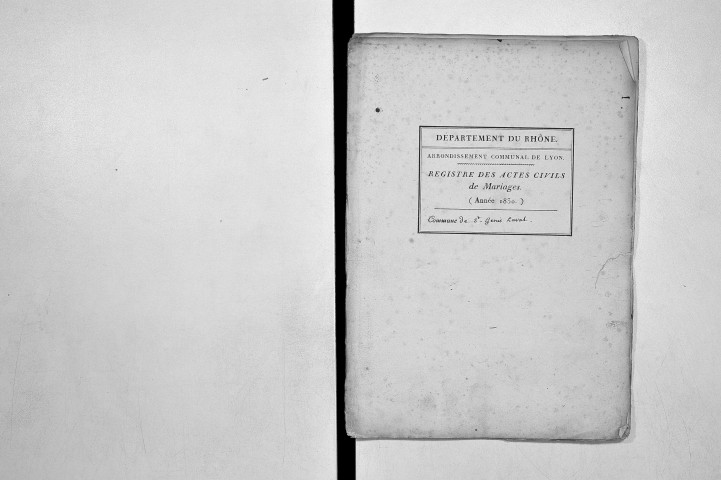 DÉPARTEMENT DU RHÔNE.
ARRONDISSEMENT COMMUNAL DE LYON.
REGISTRE DES ACTES CIVILS
de Mariages.
( Année 1830. )
Commune de St. Genis Laval.